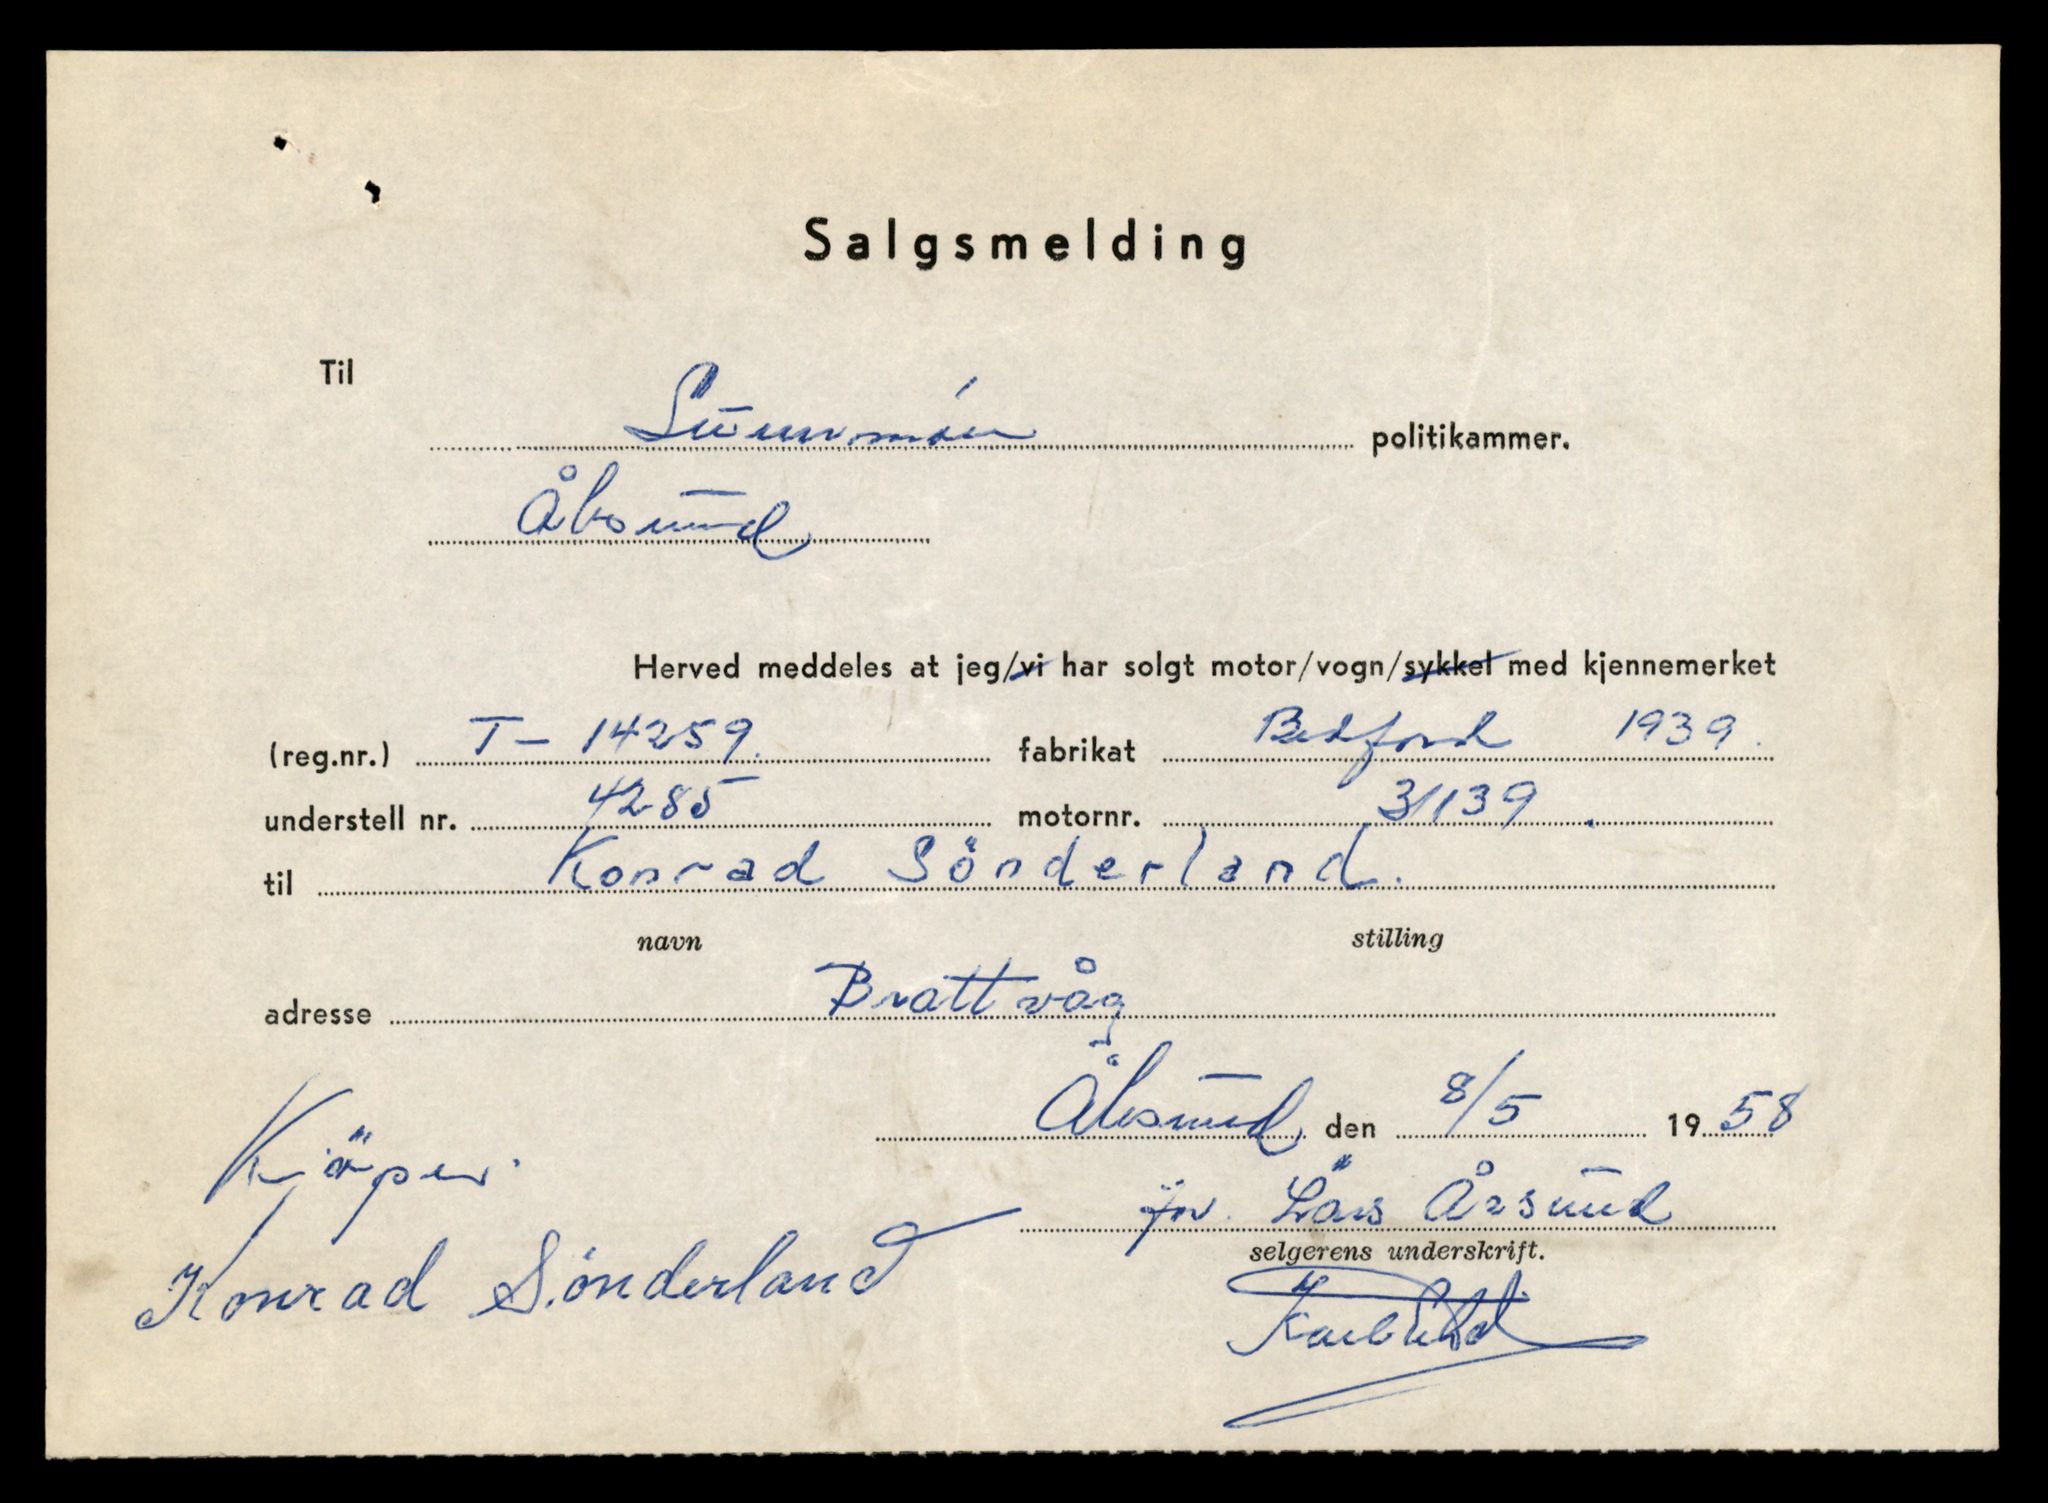 Salgsmelding
Til
Sunnmöre politikammer.
Ålesund
Herved meddeles at jeg/vi har solgt motor/vogn/sykkel med kjennemerket
(reg.nr.) T - 14259. fabrikat Bedford 1939.
understell nr. 4285 motornr. 31139.
til Konrad Sönderland.
navn stilling
adresse Brattvåg
Ålesund den 8/5 1958
Kjöper
for. Lars Årsund
selgerens underskrift.
Konrad Sönderland